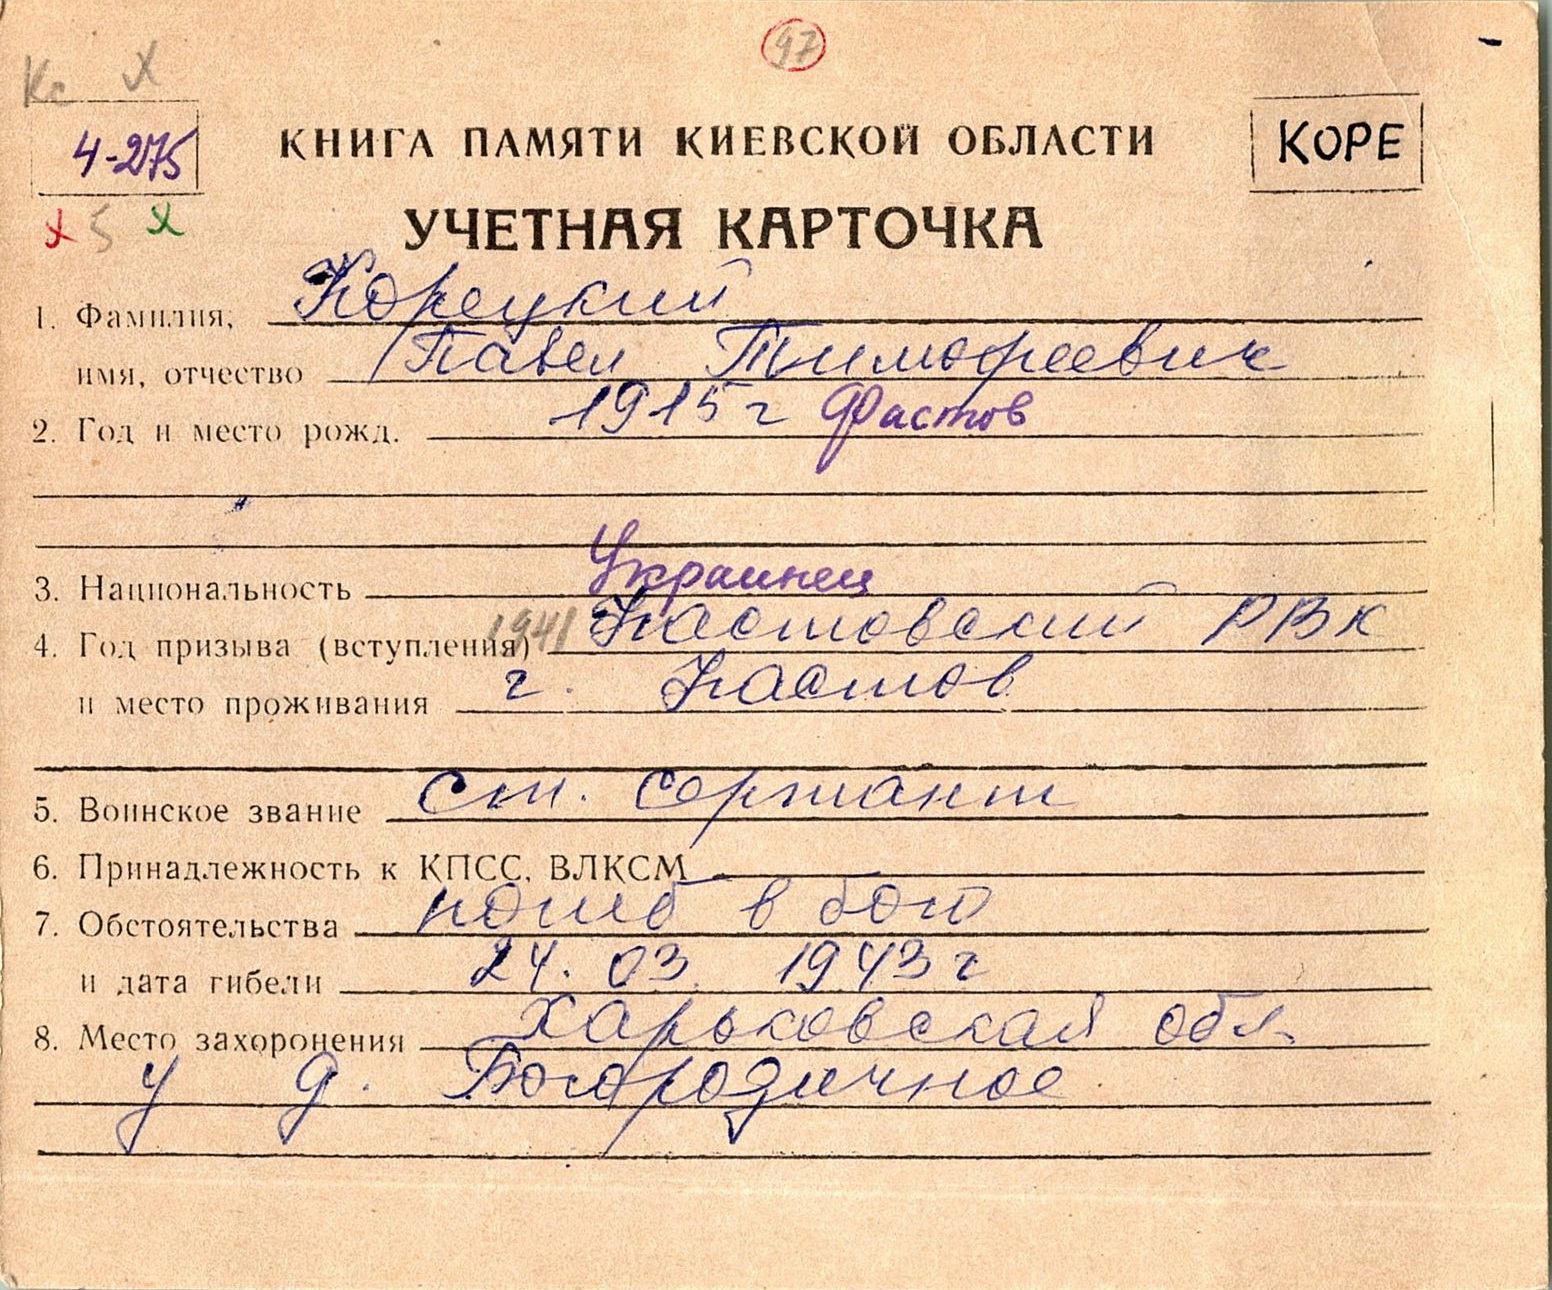 97
Кс X
4-275
КНИГА ПАМЯТИ КИЕВСКОЙ ОБЛАСТИ
КОРЕ
х 5 х
УЧЕТНАЯ КАРТОЧКА
1. Фамилия, Корецкий
имя, отчество Павел Тимофеевич
2. Год и место рожд. 1915 г Фастов
3. Национальность Украинец
4. Год призыва (вступления) 1941 Фастовский РВК
и место проживания г. Фастов
5. Воинское звание Ст. сержант
6. Принадлежность к КПСС, ВЛКСМ
7. Обстоятельства погиб в бою
и дата гибели 24. 03. 1943 г
8. Место захоронения Харьковская обл.
у д. Богородичное